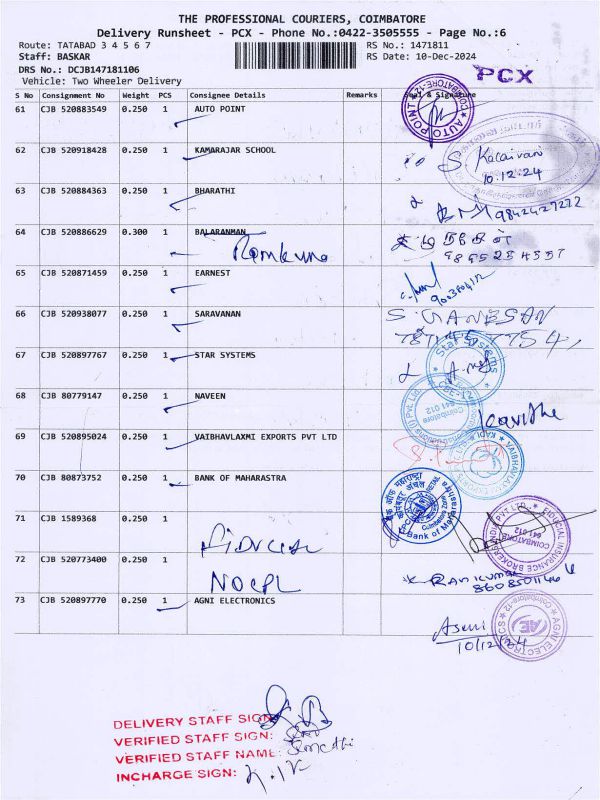 THE PROFESSIONAL COURIERS, COIMBATORE
Delivery Runsheet - PCX - Phone No.:0422-3505555 - Page No.:6
Route: TATABAD 3 4 5 6 7 RS No.: 1471811
Staff: BASKAR RS Date: 10-Dec-2024
DRS No.: DCJB147181106
Vehicle: Two Wheeler Delivery
PCX
S No Consignment No Weight PCS Consignee Details Remarks Seal & Signature
61 CJB 520883549 0.250 1 AUTO POINT
AUTO POINT COIMBATORE
62 CJB 520918428 0.250 1 KAMARAJAR SCHOOL
S Kalaivani
10.12.24
63 CJB 520884363 0.250 1 BHARATHI
9842427272
64 CJB 520886629 0.300 1 BALARANMAN
Ramkumar
65 CJB 520871459 0.250 1 EARNEST
66 CJB 520938077 0.250 1 SARAVANAN
S. GANESAN
67 CJB 520897767 0.250 1 STAR SYSTEMS
Star Systems
CBE-12
68 CJB 80779147 0.250 1 NAVEEN
Coimbatore
641 012
Kavitha
69 CJB 520895024 0.250 1 VAIBHAVLAXMI EXPORTS PVT LTD
70 CJB 80873752 0.250 1 BANK OF MAHARASTRA
बैंक ऑफ महाराष्ट्र
Bank of Maharashtra
71 CJB 1589368 0.250 1
FIDUCIAL INSURANCE BROKERS INDIA PVT LTD
COIMBATORE
641 012
72 CJB 520773400 0.250 1
NOCPL
Ranikumar
8608501146
73 CJB 520897770 0.250 1 AGNI ELECTRONICS
AGNI ELECTRONICS
Coimbatore-12
AE
10/12/24
DELIVERY STAFF SIGN:
VERIFIED STAFF SIGN:
VERIFIED STAFF NAME:
INCHARGE SIGN: